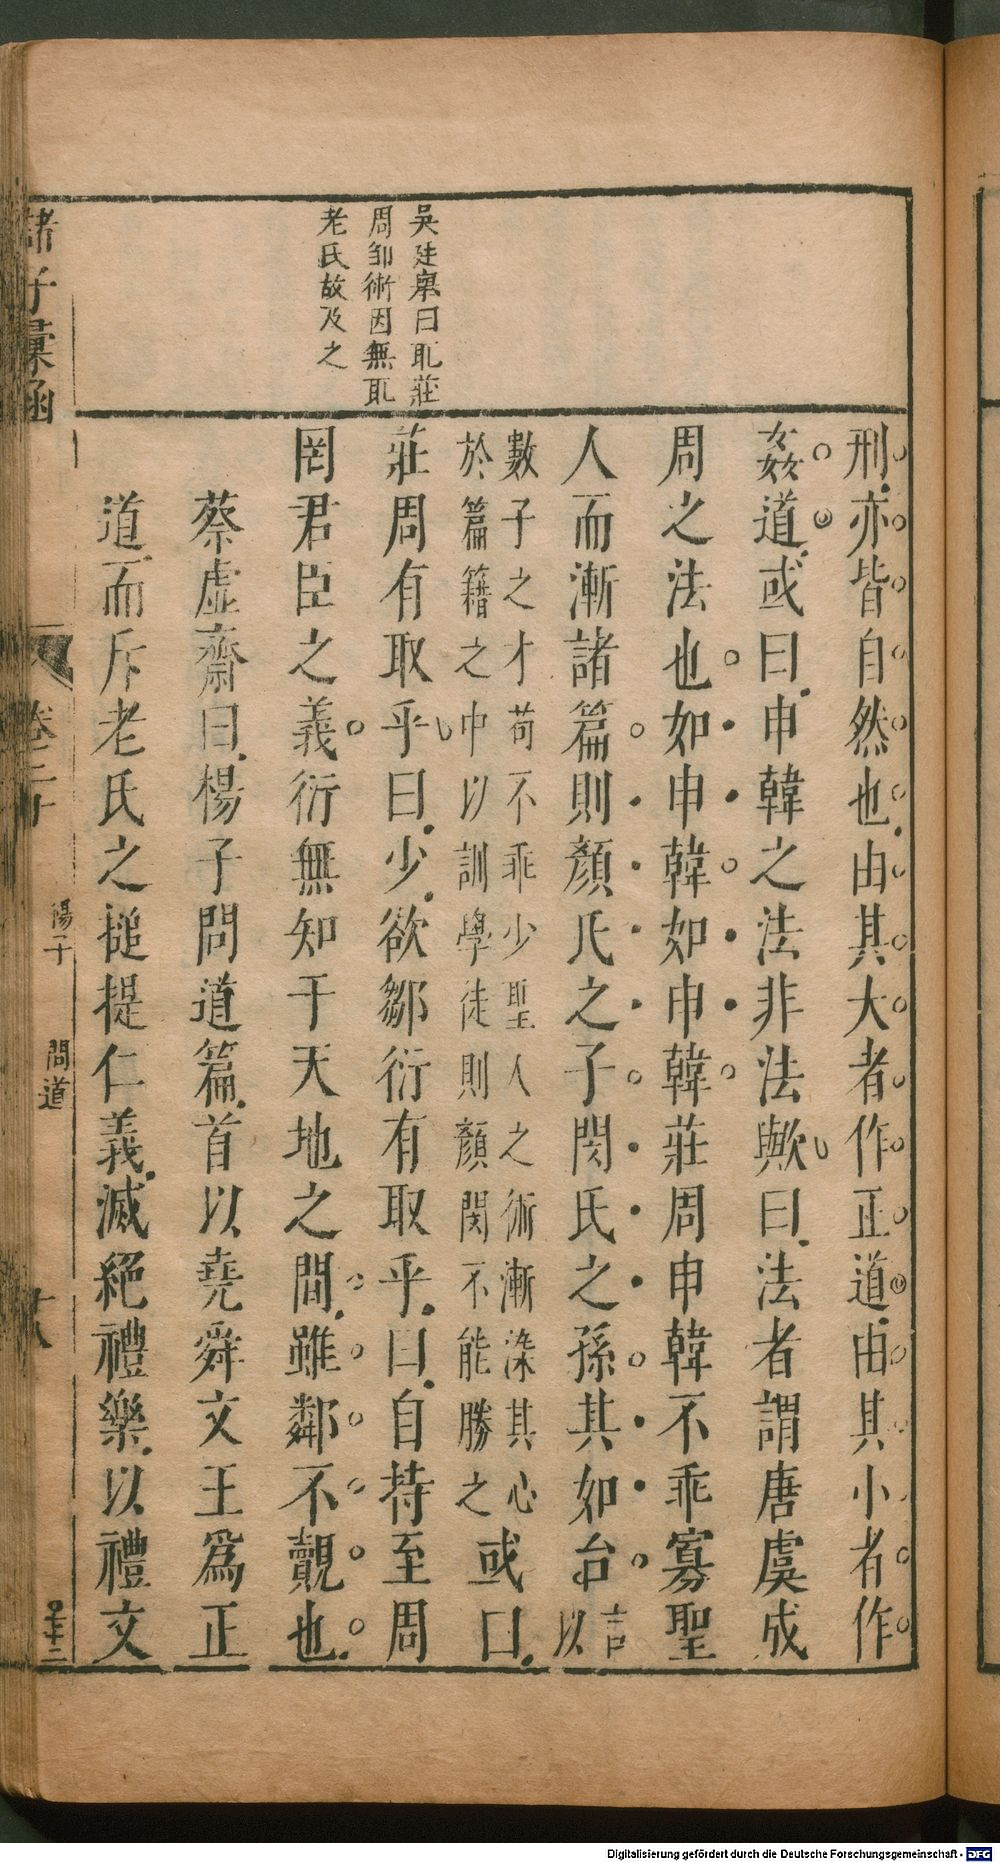 吳廷舉曰耴莊
周邹術因無耴
老氏故及之
刑亦皆自然也由其大者作正道由其小者作
姦道或曰申韓之法非法歟曰法者謂唐虞成
周之法也如申韓如申韓莊周申韓不乖寡聖
人而漸諸篇則顏氏之子閔氏之孫其如台言以
數子之才苟不乖少聖人之術漸染其心
於篇籍之中以訓學徒則顏閔不能勝之
或曰
莊周有取乎曰少欲鄒衍有取乎曰自持至周
罔君臣之義衍無知于天地之間雖鄰不覿也
蔡虛齋曰楊子問道篇首以堯舜文王為正
道而斥老氏之搥提仁義滅絕禮樂以禮文
諸子彙函
卷二十
楊子
問道
十八
Digitalisierung gefördert durch die Deutsche Forschungsgemeinschaft - DFG